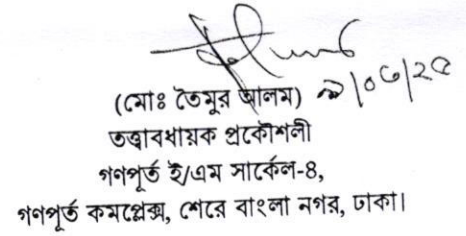 (মোঃ তৈমুর আলম)
তত্ত্বাবধায়ক প্রকৌশলী
গণপূর্ত ই/এম সার্কেল-৪,
গণপূর্ত কমপ্লেক্স, শেরে বাংলা নগর, ঢাকা।